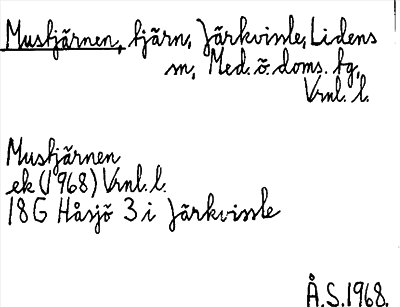 Mustjärnen, tjärn, Järkvissle, Lidens
sn, Med. ö. doms. tg,
Vrnl. l.
Mustjärnen
ek (1968) Vrnl. l.
18G Håsjö 3 i Järkvissle
Å.S. 1968.